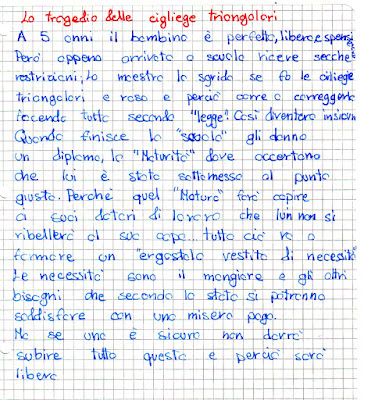 La tragedia delle cigliege triangolari
A 5 anni il bambino è perfetto, libero, e spensierato
Però appena arrivato a scuola riceve secche
restrizioni; la maestra lo sgrida se fa le ciliege
triangolari e rosa e perciò corre a correggerle
facendo tutto secondo "legge". Così diventerà insicuro
Quando finisce la "scuola" gli danno
un diploma, la "Maturità" dove accertano
che lui è stato sottomesso al punto
giusto. Perché quel "Maturo" farà capire
ai suoi datori di lavoro che lui non si
ribellerà al suo capo... tutto ciò va a
formare un "ergastolo vestito di necessità"
Le necessità sono il mangiare e gli altri
bisogni che secondo lo stato si potranno
soddisfare con una misera paga.
Ma se uno è sicuro non dovrà
subire tutto questo e perciò sarà
libero